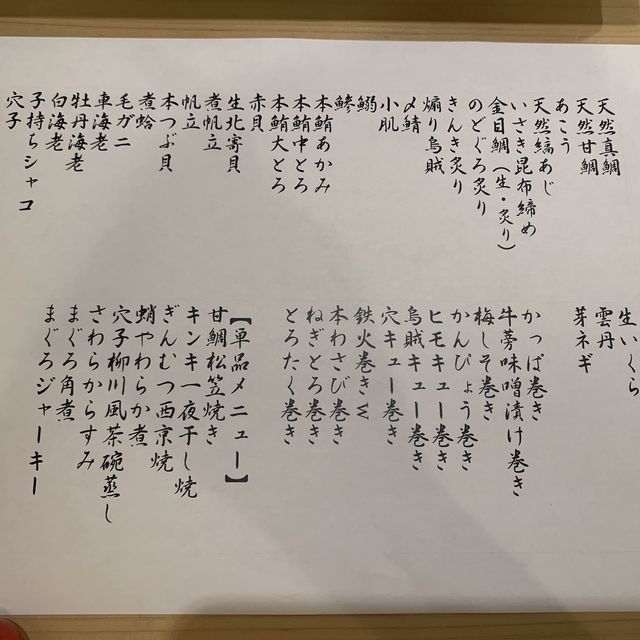 天然真鯛
天然甘鯛
あこう
天然縞あじ
いさき昆布締め
金目鯛(生・炙り)
のどぐろ炙り
きんき炙り
煽り烏賊
〆鯖
小肌
鰯
鯵
本鮪あかみ
本鮪中とろ
本鮪大とろ
赤貝
生北寄貝
煮帆立
帆立
本つぶ貝
煮蛤
毛ガニ
車海老
牡丹海老
白海老
子持ちシャコ
穴子
生いくら
雲丹
芽ネギ
かっぱ巻き
牛蒡味噌漬け巻き
梅しそ巻き
かんぴょう巻き
ヒモキュー巻き
烏賊キュー巻き
穴キュー巻き
鉄火巻きΣ
本わさび巻き
ねぎとろ巻き
とろたく巻き
【単品メニュー】
甘鯛松笠焼き
キンキ一夜干し焼
ぎんむつ西京焼
蛸やわらか煮
穴子柳川風茶碗蒸し
さわらからすみ
まぐろ角煮
まぐろジャーキー